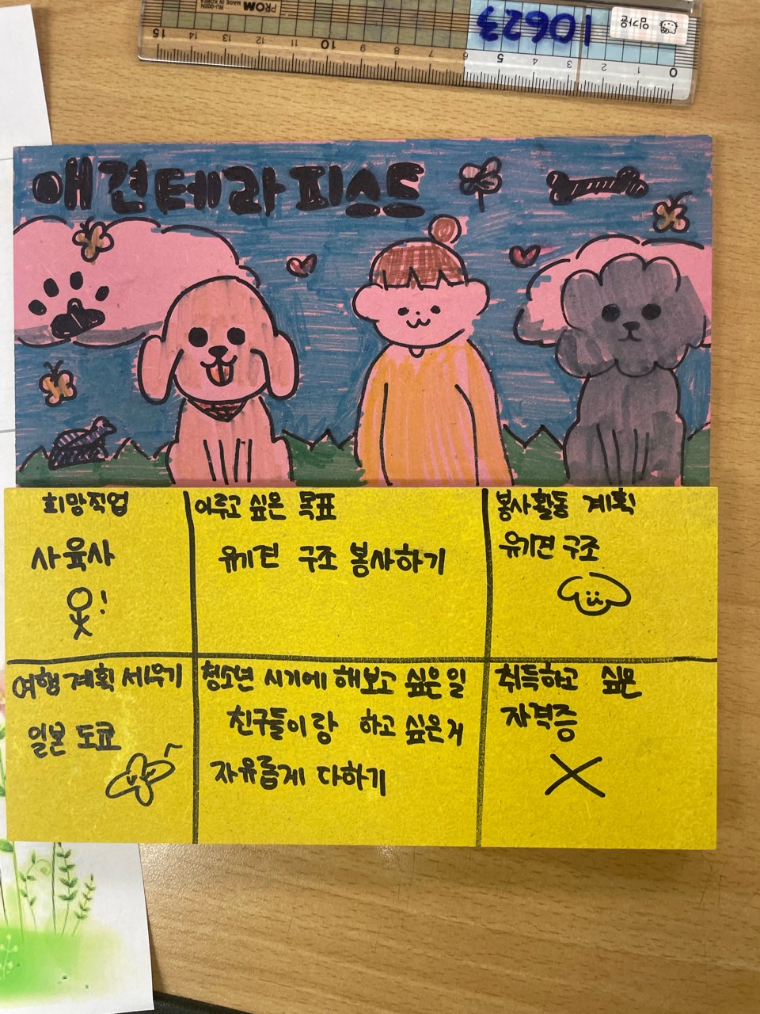 PROM
MADE IN KOREA
10623
15 10 5 0
애견테라피스트
희망직업
사육사
!
이루고 싶은 목표
유기견 구조 봉사하기
봉사활동 계획
유기견 구조
여행 계획 세우기
일본 도쿄
청소년 시기에 해보고 싶은 일
친구들이랑 하고 싶은거
자유롭게 다하기
취득하고 싶은
자격증
X